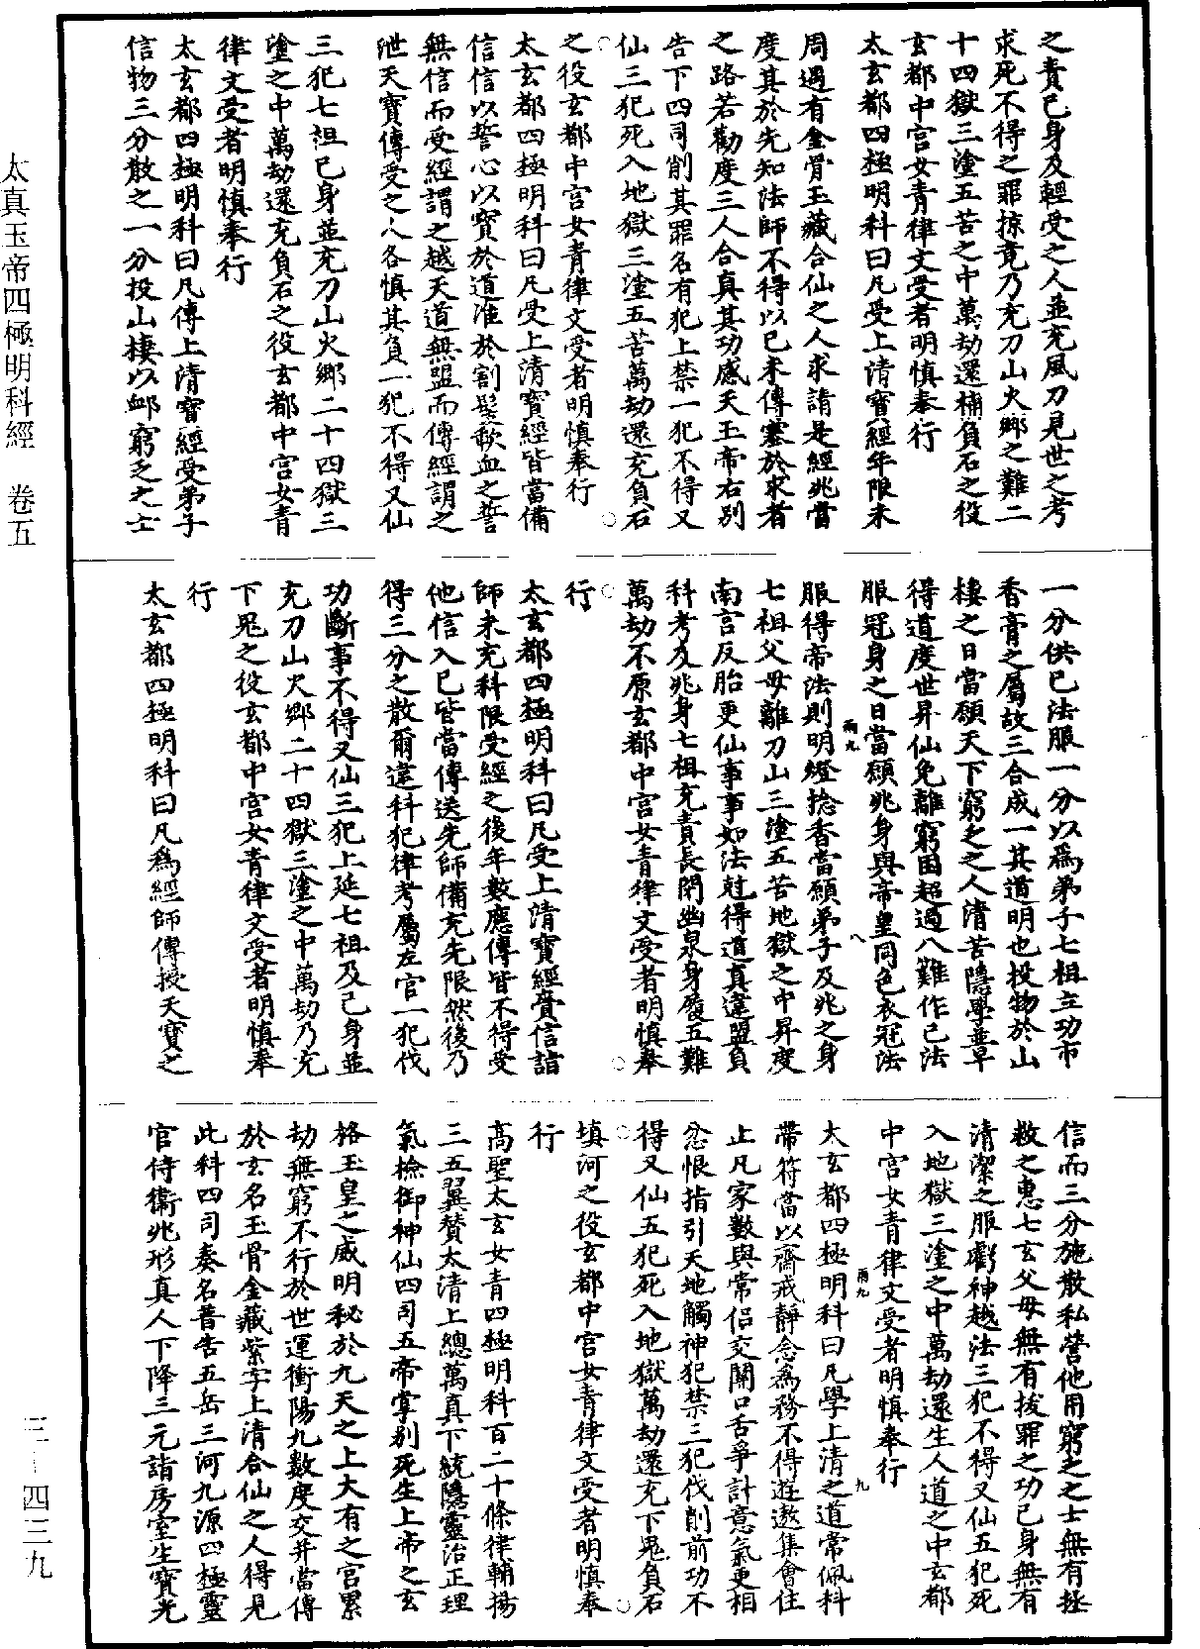 之責己身及輕受之人並充風刀見世之考
求死不得之罪掠竟乃充刀山火鄉之難二
十四獄三塗五苦之中萬劫還補負石之役
玄都中宮女青律文受者明慎奉行
太玄都四極明科曰凡受上清寶經年限未
周遇有金骨玉藏合仙之人求請是經兆當
度其於先知法師不得以已未傳塞於求者
之路若勸度三人合真其功感天王帝右別
告下四司削其罪名有犯上禁一犯不得又
仙三犯死入地獄三塗五苦萬劫還充負石
之役玄都中宮女青律文受者明慎奉行
太玄都四極明科曰凡受上清寶經皆當備
信信以誓心以寶於道准於割髮歃血之誓
無信而受經謂之越天道無盟而傳經謂之
泄天寶傳受之人各慎其負一犯不得又仙
三犯七祖己身並充刀山火鄉二十四獄三
塗之中萬劫還充負石之役玄都中宮女青
律文受者明慎奉行
太玄都四極明科曰凡傳上清寶經受弟子
信物三分散之一分投山棲以卹窮乏之士
一分供己法服一分以為弟子七祖立功市
香膏之屬故三合成一其道明也投物於山
棲之日當願天下窮乏之人清苦隱學並早
得道度世昇仙免離窮困超過八難作己法
服冠身之日當願兆身與帝皇同色衣冠法
服得帝法則明燈捻香當願弟子及兆之身
七祖父母離刀山三塗五苦地獄之中昇度
南宮反胎更仙事事如法尅得道真違盟負
科考及兆身七祖充責長閉幽泉身履五難
萬劫不原玄都中宮女青律文受者明慎奉
行
太玄都四極明科曰凡受上清寶經齎信詣
師未充科限受經之後年數應傳皆不得受
他信入己皆當傳送先師備充先限然後乃
得三分之散爾違科犯律考屬左官一犯伐
功斷事不得又仙三犯上延七祖及己身並
充刀山火鄉二十四獄三塗之中萬劫乃充
下鬼之役玄都中宮女青律文受者明慎奉
行
太玄都四極明科曰凡為經師傳授天寶之
信而三分施散私營他用窮乏之士無有拯
救之惠七玄父母無有拔罪之功己身無有
清潔之服虧神越法三犯不得又仙五犯死
入地獄三塗之中萬劫還生人道之中玄都
中宮女青律文受者明慎奉行
太玄都四極明科曰凡學上清之道常佩科
帶符當以齋戒靜念為務不得遊遨集會住
止凡家數與常侶交關口舌爭計意氣更相
忿恨指引天地觸神犯禁三犯伐削前功不
得又仙五犯死入地獄萬劫還充下鬼負石
填河之役玄都中宮女青律文受者明慎奉
行
高聖太玄女青四極明科百二十條律輔揚
三五翼贊太清上總萬真下統隱靈治正理
氣檢御神仙四司五帝掌別死生上帝之玄
格玉皇之威明秘於九天之上大有之宮累
劫無窮不行於世運衝陽九數度交并當傳
於玄名玉骨金藏紫字上清合仙之人得見
此科四司奏名普告五岳三河九源四極靈
官侍衛兆形真人下降三元詣房室生寶光
太真玉帝四極明科經　卷五
三－四三九